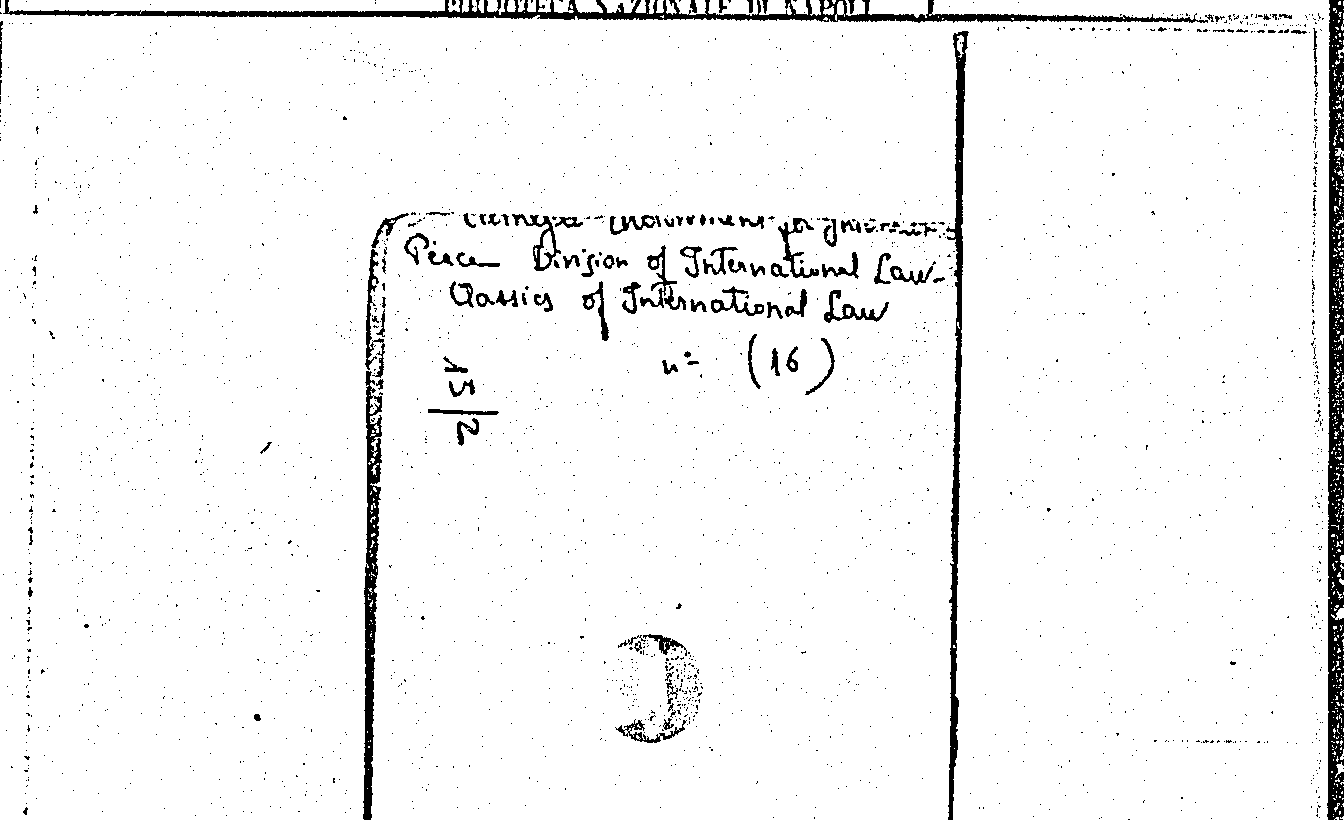 BIBLIOTECA NAZIONALE DI NAPOLI
Carnegie Endowment for
Peace Division of International Law-
Classics of International Law
n° (16)
15
2